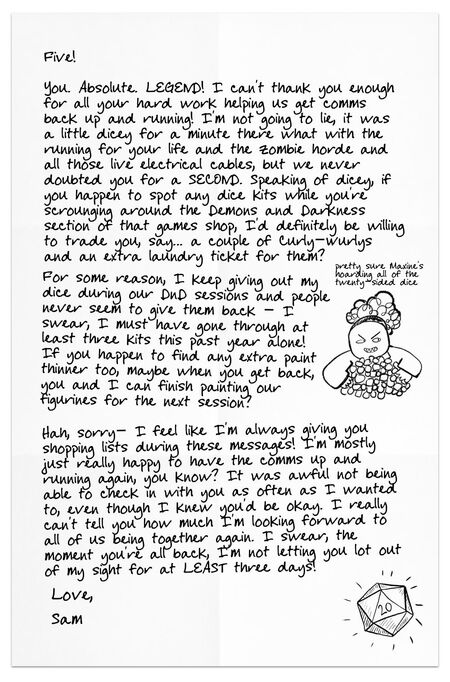 Five!
You. Absolute. LEGEND! I can't thank you enough
for all your hard work helping us get comms
back up and running! I'm not going to lie, it was
a little dicey for a minute there what with the
running for your life and the zombie horde and
all those live electrical cables, but we never
doubted you for a SECOND. Speaking of dicey, if
you happen to spot any dice kits while you're
scrounging around the Demons and Darkness
section of that games shop, I'd definitely be willing
to trade you, say... a couple of Curly-wurlys
and an extra laundry ticket for them?
pretty sure Maxine's
hoarding all of the
twenty-sided dice
For some reason, I keep giving out my
dice during our DnD sessions and people
never seem to give them back – I
swear, I must have gone through at
least three kits this past year alone!
If you happen to find any extra paint
thinner too, maybe when you get back,
you and I can finish painting our
figurines for the next session?
Hah, sorry– I feel like I'm always giving you
shopping lists during these messages! I'm mostly
just really happy to have the comms up and
running again, you know? It was awful not being
able to check in with you as often as I wanted
to, even though I knew you'd be okay. I really
can't tell you how much I'm looking forward to
all of us being together again. I swear, the
moment you're all back, I'm not letting you lot out
of my sight for at LEAST three days!
Love,
Sam
20